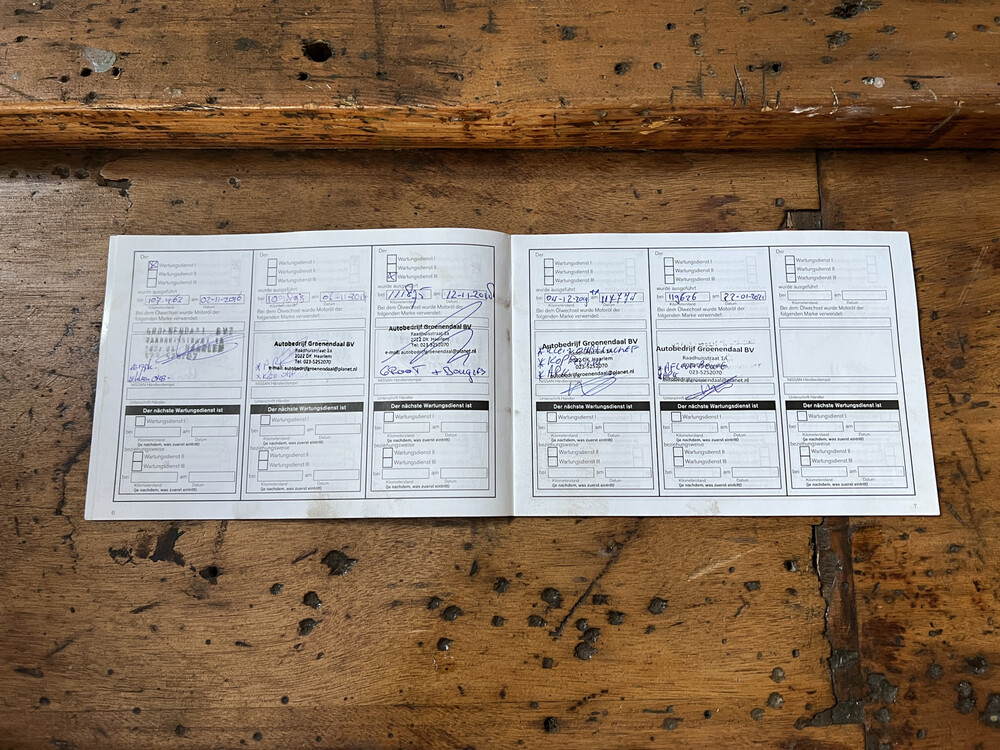 Der
Wartungsdienst I
Wartungsdienst II
Wartungsdienst III
wurde ausgeführt
bei 107.462 am 02-11-2016
Bei dem Ölwechsel wurde Motoröl der
folgenden Marke verwendet:
GROENENDAAL
HAARLEM
NISSAN Händlerstempel
Unterschrift Händler
Der nächste Wartungsdienst ist
Wartungsdienst I
bei am
Kilometerstand Datum
(je nachdem, was zuerst eintritt)
beziehungsweise
Wartungsdienst II
Wartungsdienst III
bei am
Kilometerstand Datum
(je nachdem, was zuerst eintritt)
6
Der
Wartungsdienst I
Wartungsdienst II
Wartungsdienst III
wurde ausgeführt
bei am
Datum
Bei dem Ölwechsel wurde Motoröl der
folgenden Marke verwendet:
Autobedrijf Groenendaal BV
Raadhuisstraat 1A
2022 DK Haarlem
Tel: 023-5252070
e-mail: autobedrijfgroenendaal@planet.nl
NISSAN Händlerstempel
Unterschrift Händler
Der nächste Wartungsdienst ist
Wartungsdienst I
bei am
Kilometerstand Datum
(je nachdem, was zuerst eintritt)
beziehungsweise
Wartungsdienst II
Wartungsdienst III
bei am
Kilometerstand Datum
(je nachdem, was zuerst eintritt)
Der
Wartungsdienst I
Wartungsdienst II
Wartungsdienst III
wurde ausgeführt
bei 111875 am 12-11-2018
Bei dem Ölwechsel wurde Motoröl der
folgenden Marke verwendet:
Autobedrijf Groenendaal BV
Raadhuisstraat 1A
2022 DK Haarlem
Tel: 023-5252070
e-mail: autobedrijfgroenendaal@planet.nl
GROOT + BOUGIES
NISSAN Händlerstempel
Unterschrift Händler
Der nächste Wartungsdienst ist
Wartungsdienst I
bei am
Kilometerstand Datum
(je nachdem, was zuerst eintritt)
beziehungsweise
Wartungsdienst II
Wartungsdienst III
bei am
Kilometerstand Datum
(je nachdem, was zuerst eintritt)
Der
Wartungsdienst I
Wartungsdienst II
Wartungsdienst III
wurde ausgeführt
bei 04-12-2019 am
Bei dem Ölwechsel wurde Motoröl der
folgenden Marke verwendet:
Autobedrijf Groenendaal BV
2022 DK Haarlem
023-5252070
autobedrijfgroenendaal@planet.nl
NISSAN Händlerstempel
Unterschrift Händler
Der nächste Wartungsdienst ist
Wartungsdienst I
bei am
Kilometerstand Datum
(je nachdem, was zuerst eintritt)
beziehungsweise
Wartungsdienst II
Wartungsdienst III
bei am
Kilometerstand Datum
(je nachdem, was zuerst eintritt)
Der
Wartungsdienst I
Wartungsdienst II
Wartungsdienst III
wurde ausgeführt
bei 119626 am 22-01-2021
Bei dem Ölwechsel wurde Motoröl der
folgenden Marke verwendet:
Autobedrijf Groenendaal BV
Raadhuisstraat 1A
023-5252070
AFLEVERBEURT
NISSAN Händlerstempel
Unterschrift Händler
Der nächste Wartungsdienst ist
Wartungsdienst I
bei am
Kilometerstand Datum
(je nachdem, was zuerst eintritt)
beziehungsweise
Wartungsdienst II
Wartungsdienst III
bei am
Kilometerstand Datum
(je nachdem, was zuerst eintritt)
Der
Wartungsdienst I
Wartungsdienst II
Wartungsdienst III
wurde ausgeführt
bei am
Kilometerstand Datum
Bei dem Ölwechsel wurde Motoröl der
folgenden Marke verwendet:
NISSAN Händlerstempel
Unterschrift Händler
Der nächste Wartungsdienst ist
Wartungsdienst I
bei am
Kilometerstand Datum
(je nachdem, was zuerst eintritt)
beziehungsweise
Wartungsdienst II
Wartungsdienst III
bei am
Kilometerstand Datum
(je nachdem, was zuerst eintritt)
7